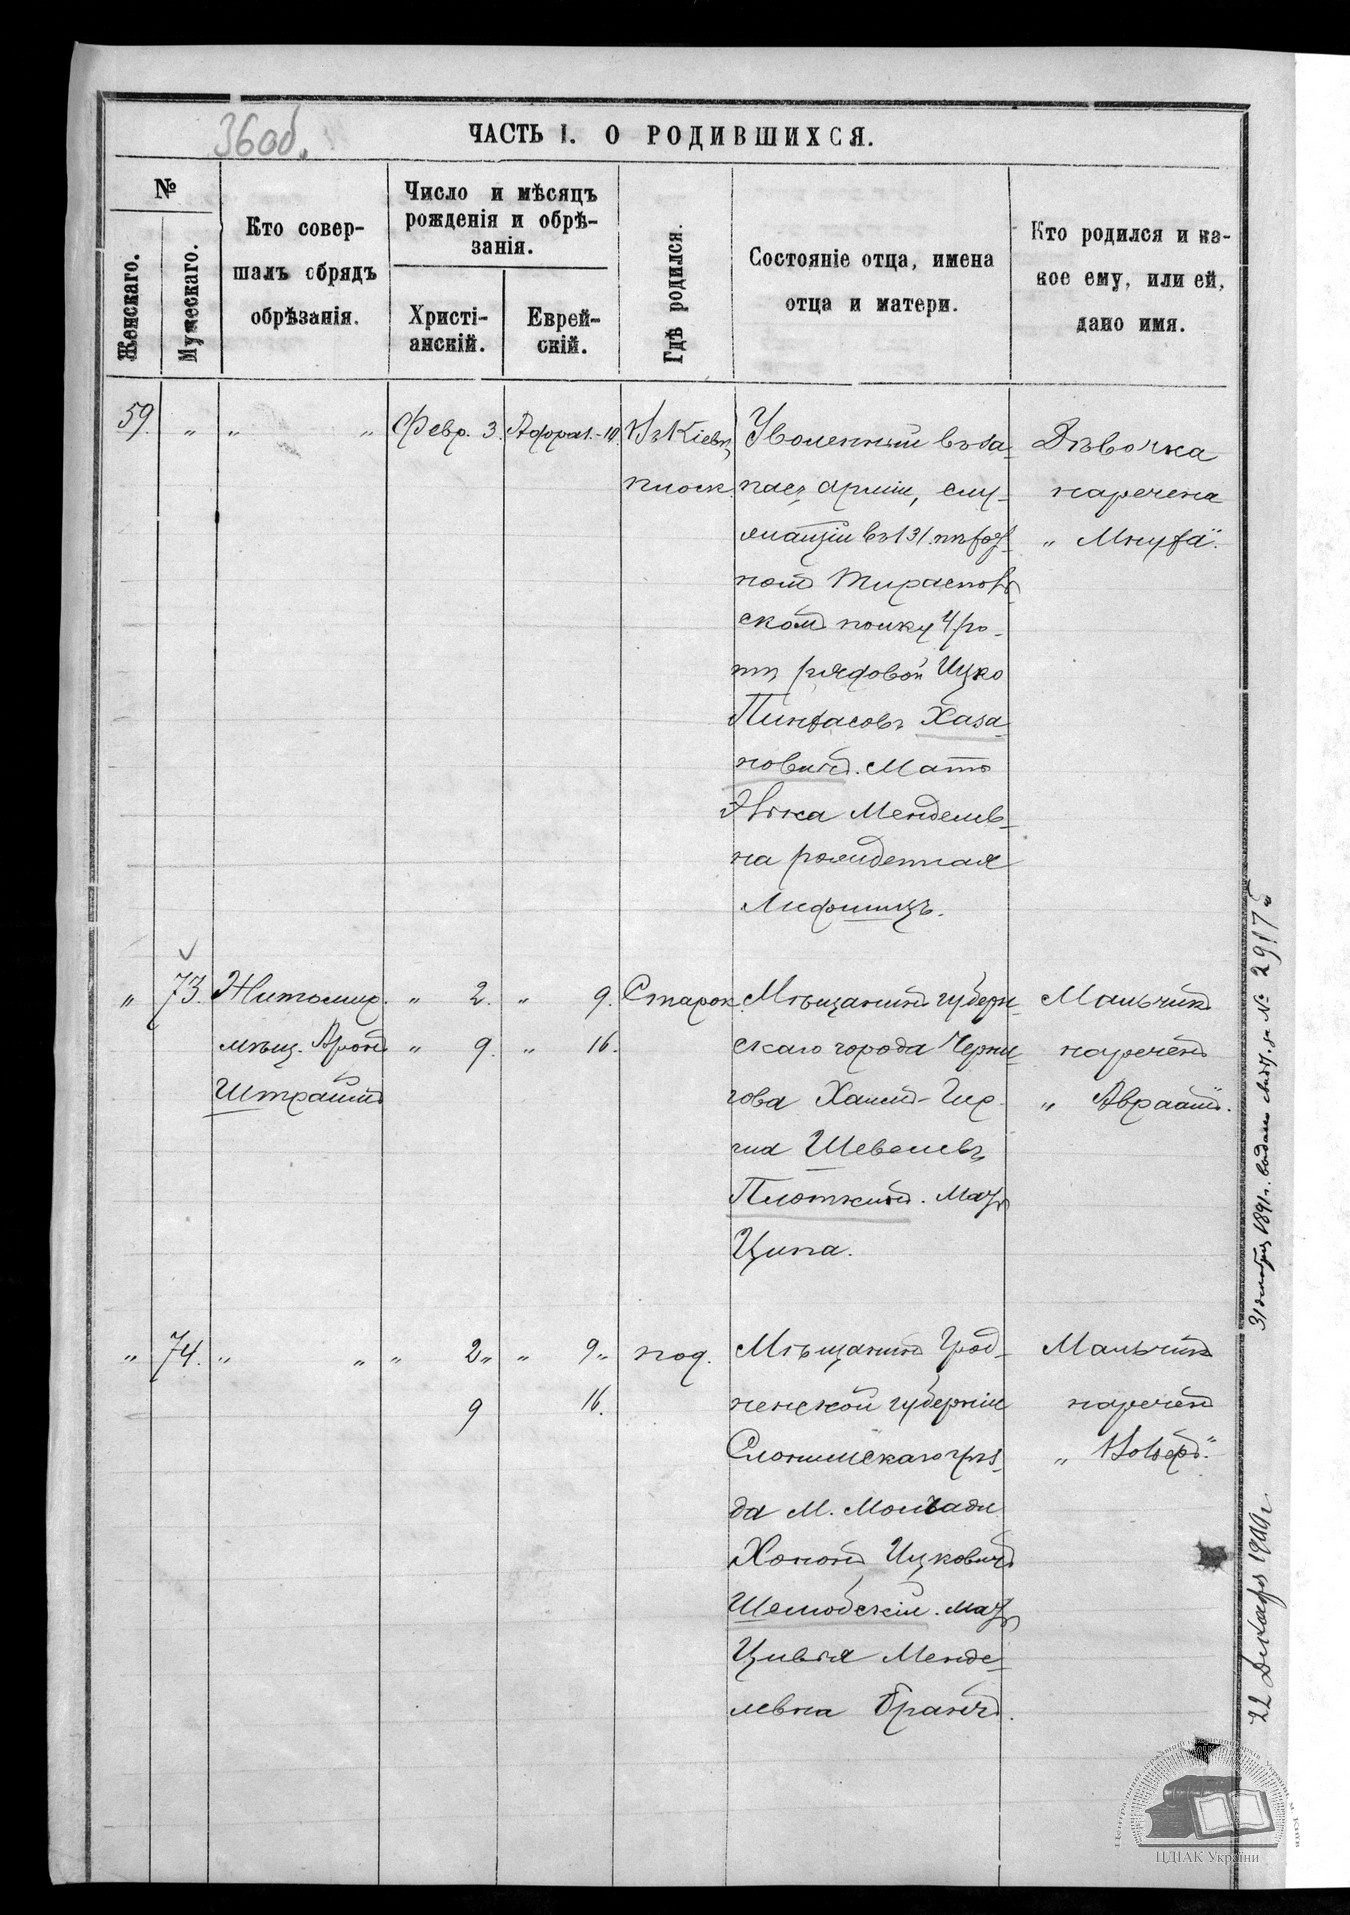 36об.
ЧАСТЬ I. О РОДИВШИХСЯ.
№
Женскаго.
Мужескаго.
Кто совер-
шалъ обрядъ
обрѣзанія.
Число и мѣсяцъ
рожденія и обрѣ-
занія.
Христі-
анскій.
Еврей-
скій.
Гдѣ родился.
Состояніе отца, имена
отца и матери.
Кто родился и ка-
кое ему, или ей,
дано имя.
59. " " " Февр. 3. 10. Въ Кіевѣ
плоск.
Уволенный въ за-
пасъ арміи, слу-
жащій въ 131. пѣхот-
номъ Тирасполь-
скомъ полку 4 ро-
ты рядовой Ицко
Пинхасовъ Хаза-
новичъ. Мать
Менделев-
на рожденная
Лифшицъ.
Дѣвочка
наречена
" Мнуха".
" 73. Житомир.
мѣщ. Аронъ
Штраймъ
" 2. " 9. Старок.
" 9. " 16.
Мѣщанинъ губерн-
скаго города Черни-
гова Хаимъ-Гир
ша Шевелевъ
Плоткинъ. Мать
Ципа.
Мальчикъ
нареченъ
" Авраамъ".
" 74. " " " 2 " " 9 " под.
9 16.
Мѣщанинъ Грод-
ненской губерніи
Слонимскаго уѣз-
да М. Молчади
Хононъ Ицковичъ
Шелюбскій. Мать
Цивья Менде-
левна Бранчъ.
Мальчикъ
нареченъ
" Вольфъ."
31 октября 1891 г. выдано свид. за № 2917
22 Декабря 1900 г.
ЦДІАК України